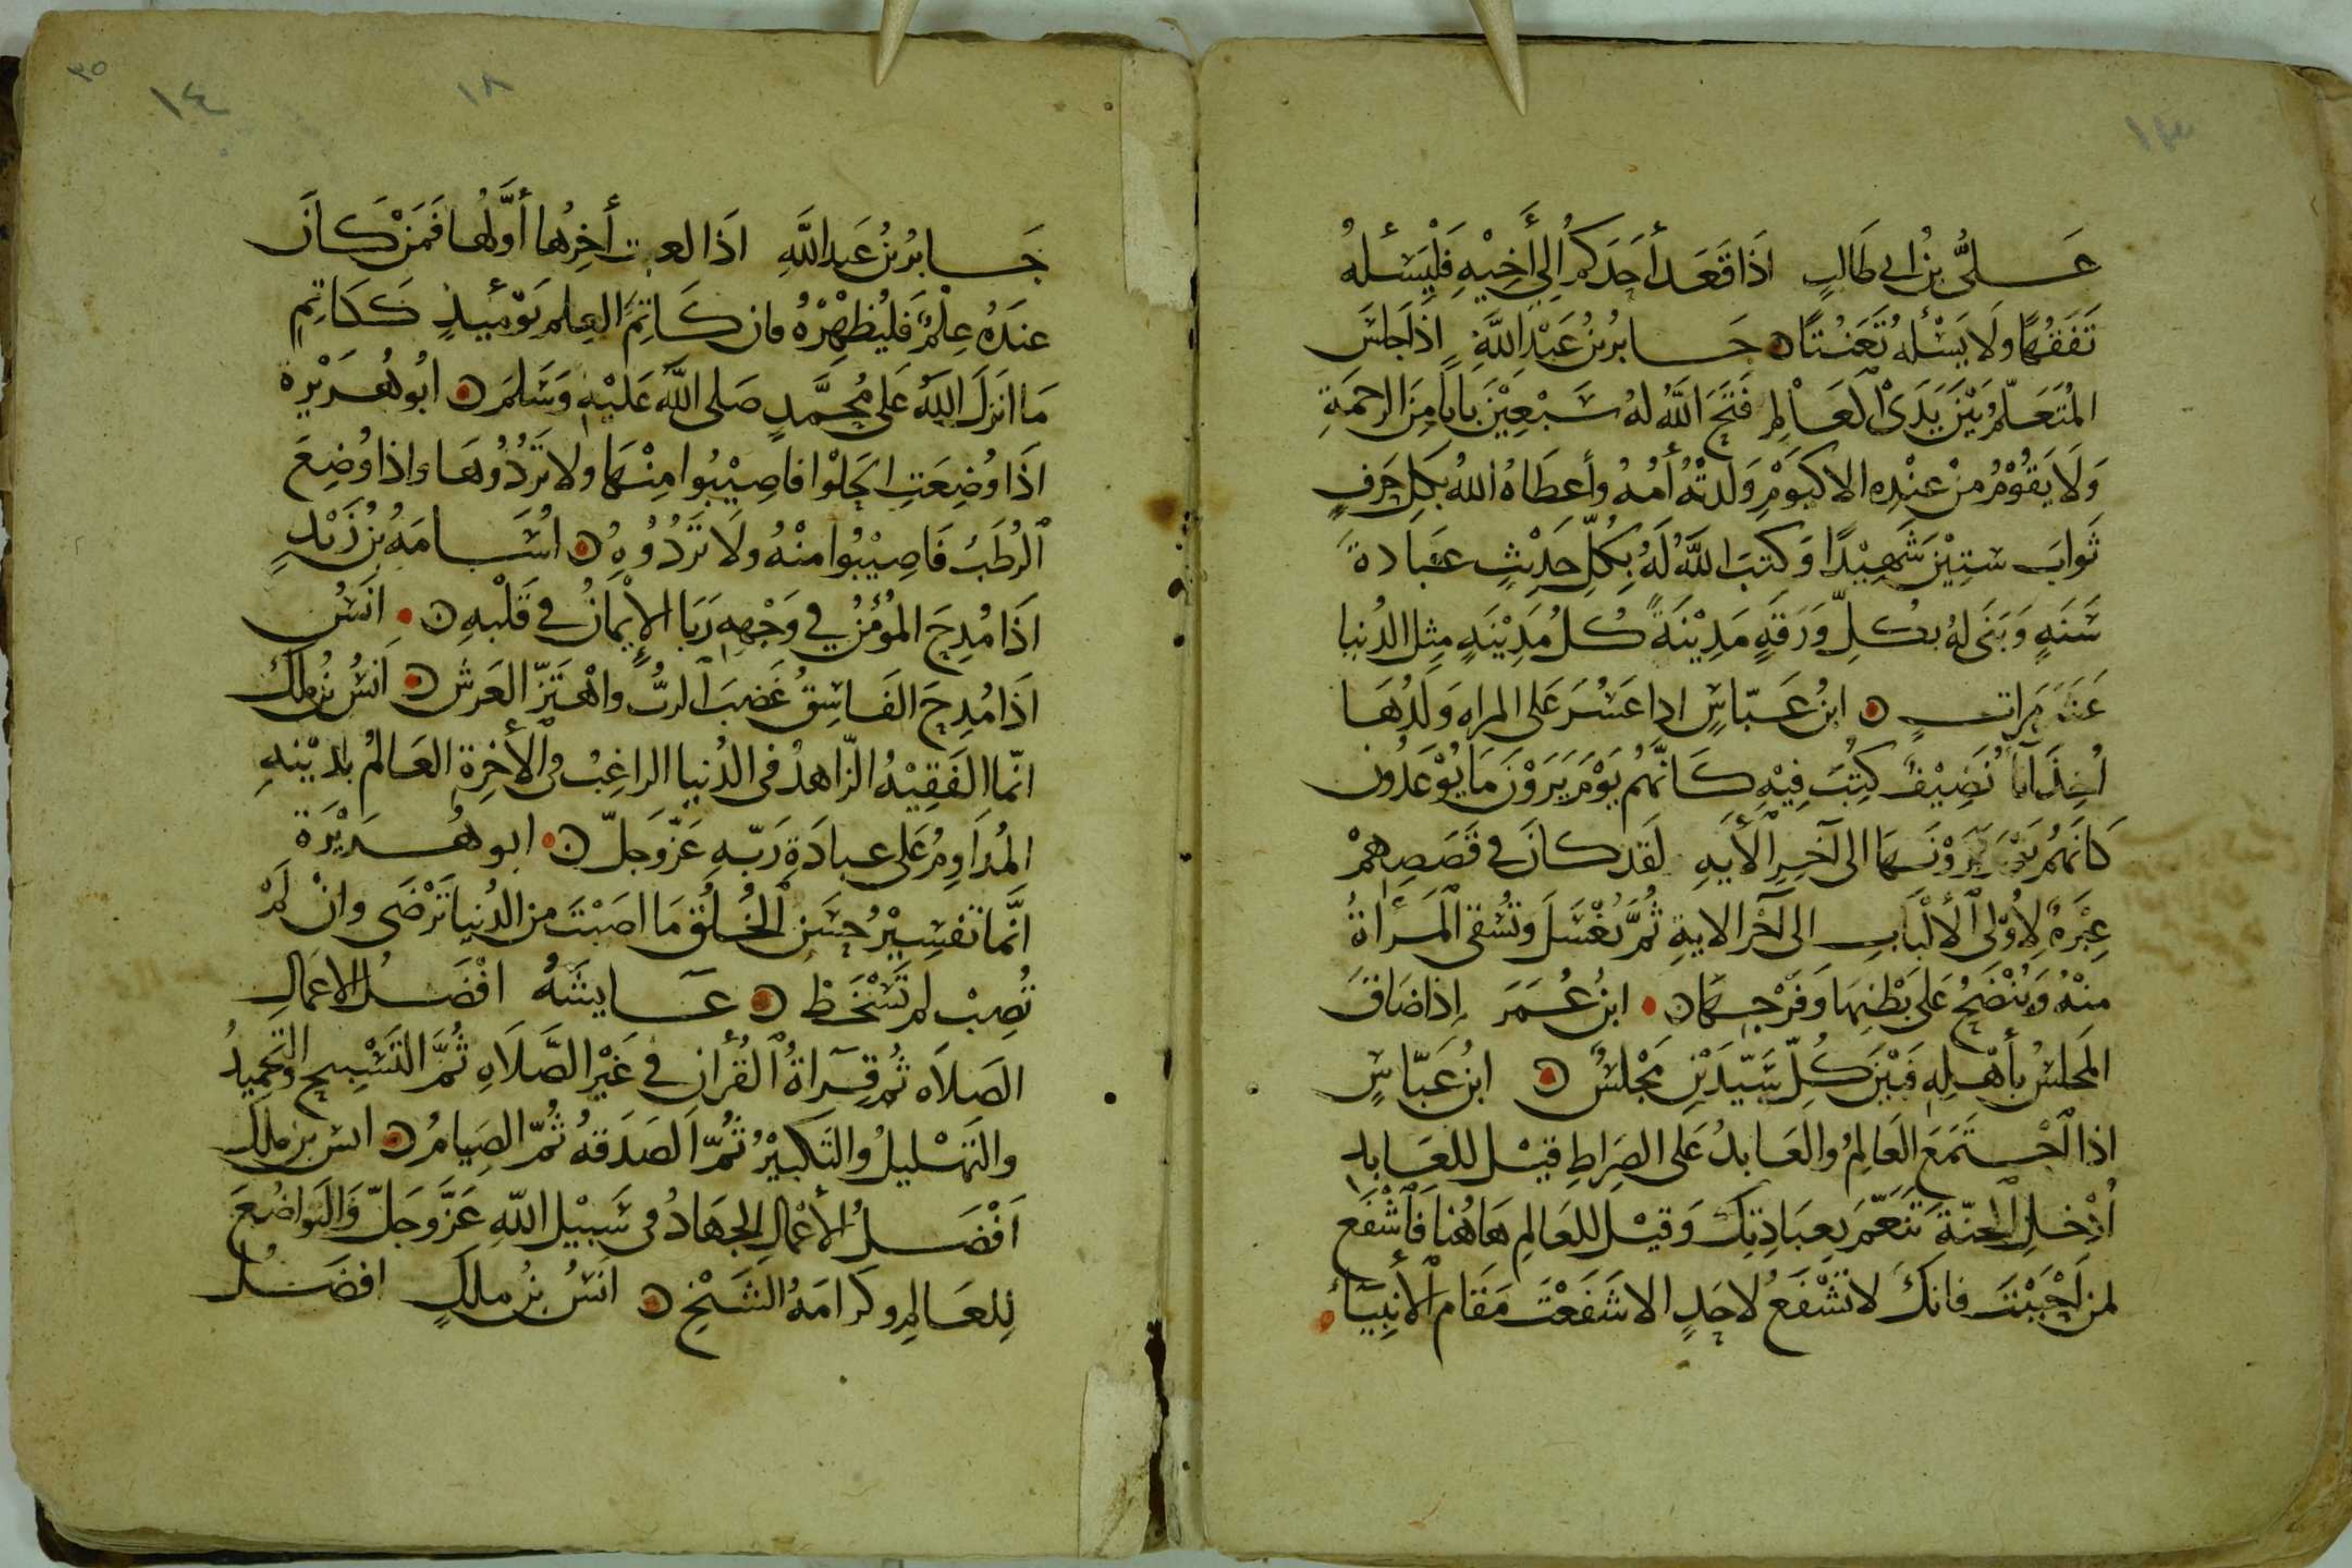 ١٣
عَلىُّ بنُ ابى طَالبٍ اذَا قَعَدَ أحَدَكُمُ إلى أَخِيْهِ فَلْيَسْئَلهُ
تَفَقُهًا ولَا يَسْئَلهُ تَعَنُتًا جَابرُ بنُ عَبْدِ اللَّهِ إذَا جَلسَ
المُتَعَلّمُ بَيْنَ يَدَىِ الْعَالِمِ فَتَحَ اللَّهُ لهُ سَبْعِيْنَ بابًا مِنَ الرحمَةِ
وَلَا يَقُوْمُ منْ عنْدِه الا كَيَوْمِ وَلَدتْهُ أمُهُ وأعطَاهُ اللهُ بكلِ حَرفٍ
ثَوابَ ستيْنَ شَهِيْدًا وَكتبَ اللَّهُ لَهُ بِكلّ حَديْثٍ عبَادةَ
سَنَةٍ وَبَنَى لهُ بكلِّ وَرَقَةٍ مَدِيْنَةً كلُ مَدِيْنَةٍ مِثلَ الدُنيا
عَشَرَ مَراتٍ ابنُ عَبّاسٍ اذا عَسُرَ عَلى المراهِ وَلَدُهَا
أخِذَ اناً نَضِيْفً كُتِبَ فِيْهِ كَانَّهُم يَوْمَ يَرَوْنَ مَا يُوْعَدُون
كَانَهُم يَوْمَ يَرَوْنَهَا الى آخِرِ الْأيَهِ لَقَد كانَ فى قَصَصِهِمْ
عِبْرَهً لأُوْلى الْألْبَابِ الى آخر الايةِ ثُمَّ يُغْسَلَ وتُسْقى الْمَرْأةُ
منْهُ وَيُنْضَحُ عَلى بَطْنِهَا وَفَرْجِهَا ابنُ عُمَرَ إذا ضَاقَ
المَجلسُ بأهْلِهِ فَبَيْنَ كُلِّ سَيّدَيْنِ مَجْلسٌ ابنُ عَبّاسٍ
اذا اجْتَمَعَ الْعَالِمُ والْعَابدُ عَلى الصِراطِ قيْل للعَابدِ
أدْخلِ الجنّةَ تَنَعّمَ بعِبَادتِكَ وَقيْلَ للعَالمِ هَاهُنَا فَاشْفَع
لمن احْبَبْتَ فانكَ لا تَشْفَعُ لاحَدٍ الا شَفَعْتَ مَقَام الْأنْبِيَاءِ
٣٥
١٤
١٨
جَابرُ بنُ عَبدِ اللَّهِ اذَا أخِرُها أوَّلُها فَمَنْ كانَ
عندَهُ عِلْمٌ فَليُظهِرْهُ فان كَاتِمَ العِلمِ يَوْمَئِيذٍ ككَاتِمِ
مَا انزَلَ اللَّهُ عَلى مُحمَّدٍ صَلى اللَّهُ عَلَيْهِ وَسَلمَ ابُو هُرَيْرة
اذَا وُضِعَتِ الحَلْوا فاصِيْبُوا مِنْهَا ولا تَرُدُوهَا واذا وُضِعَ
الرُطَبُ فَاصِيْبُوا منْهُ ولَا تَرُدُوُهُ اسَامَهُ بنُ زَيْدٍ
اذَا مُدِحَ المُؤمنُ فى وَجْهِهِ رَبَا الإيْمانُ فى قَلْبهِ انَسُ
اذَا مُدِحَ الفَاسِقُ غَضِبَ الربُّ واهْتَزّ العَرش انَسُ بنُ ملك
انّما الفَقِيْهُ الزّاهدُ فى الدُنيا الراغِبُ فى الْأخِرةِ العَالمُ بديْنهِ
المُدَاوِمُ عَلى عبادَةِ رَبّهِ عَزّوَجَلّ ابو هُرَيْرَة
انَّما تفسِيْرُ حسنِ الْخُلُق مَا اصَبْتَ من الدُنيا تَرْضَى وانْ لَمْ
تُصِبْ لم تَسْخَطْ عَايشَهُ افْضَلُ الاعمَالِ
الصَلَاه ثُم قِرآةُ الْقُرأنِ فى غَيْرِ الصَّلَاهِ ثُمَّ التَسْبِيح والتَحمِيدُ
والتَهلِيلُ والتَكبيْرُ ثُمَّ الصَدَقهُ ثُمّ الصِيَامُ انس بن ملك
اَفْضَلُ الأعْمالِ الجهَادُ فى سَبيْلِ اللّهِ عَزَّوَجَلّ وَالتواضُعَ
لِلعَالمِ وكرَامَهُ الشَيْخِ انَسُ بنُ ملكٍ افضَلُ